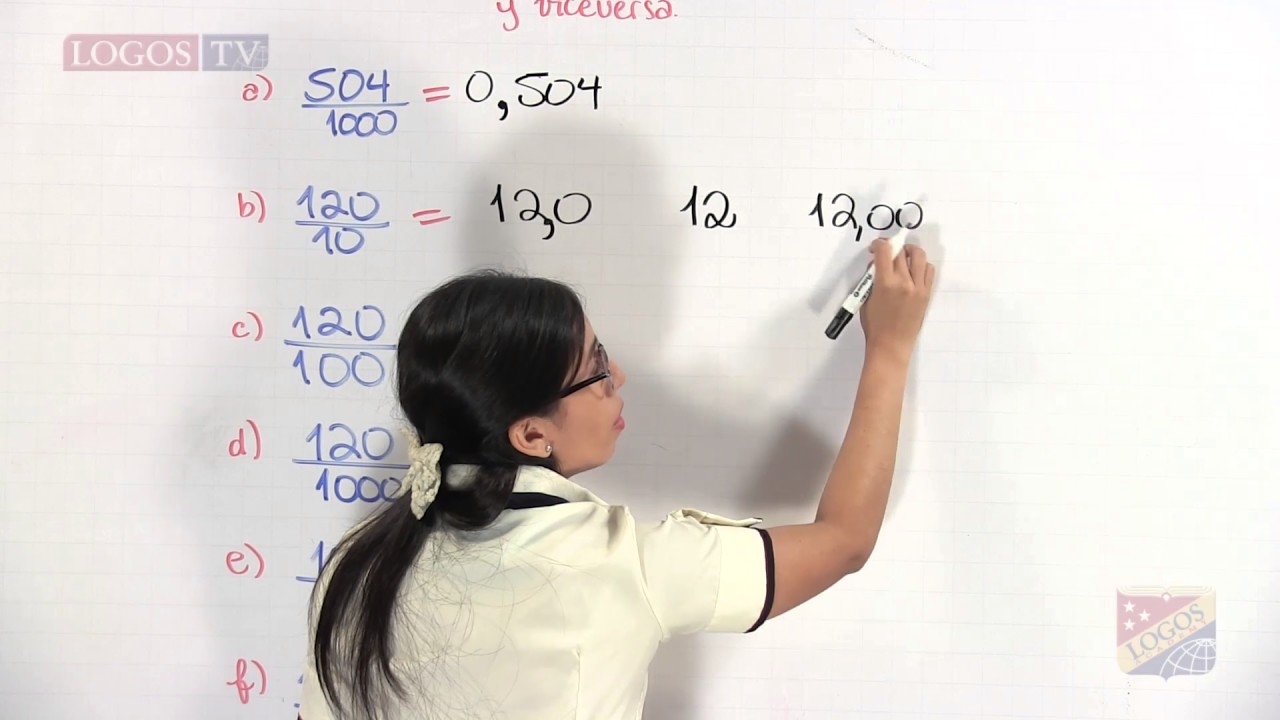 y viceversa.
LOGOS TV
a) 504/1000 = 0,504
b) 120/10 = 12,0 12 12,00
c) 120/100
d) 120/1000
e) 1
f)
LOGOS